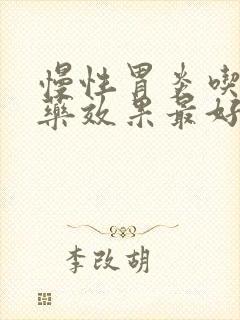 慢性胃炎喫
藥效果最好
李改胡